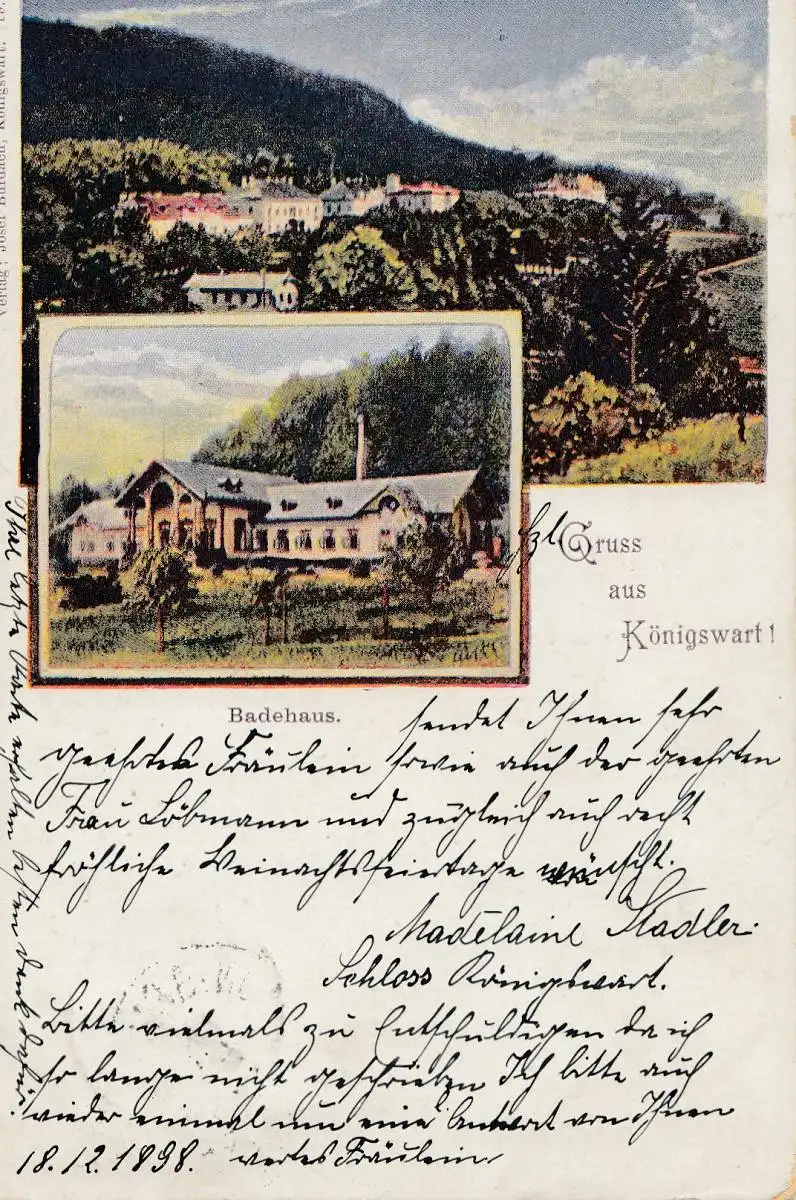 Verlag: Josef Burdach, Königswart.
hzl. Gruss
aus
Königswart!
Badehaus.
sendet Ihnen sehr
geehrtes Fräulein sowie auch der geehrten
Frau Löbmann und zugleich auch recht
fröhliche Weinachtsfeiertage wünscht.
Madelaine Stadler.
Schloss Königswart.
Bitte vielmals zu Entschuldigen da ich
so lange nicht geschrieben Ich bitte auch
wieder einmal um eine Antwort von Ihnen
18.12.1898. wertes Fräulein
letzte Karte erhalten besten dank dafür.